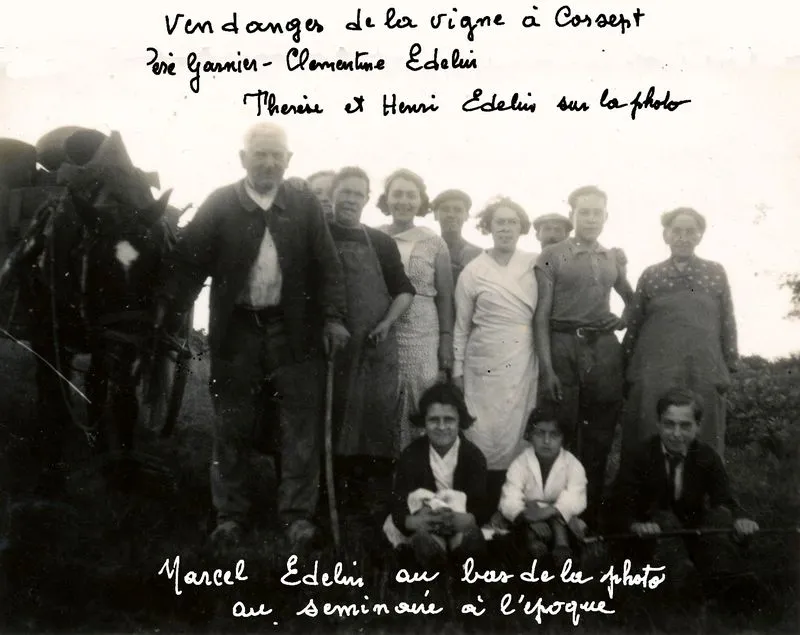 Vendanges de la vigne à Cossept
Père Garnier - Clementine Edelin
Therèse et Henri Edelin sur la photo
Marcel Edelin au bas de la photo
au seminaire à l'epoque